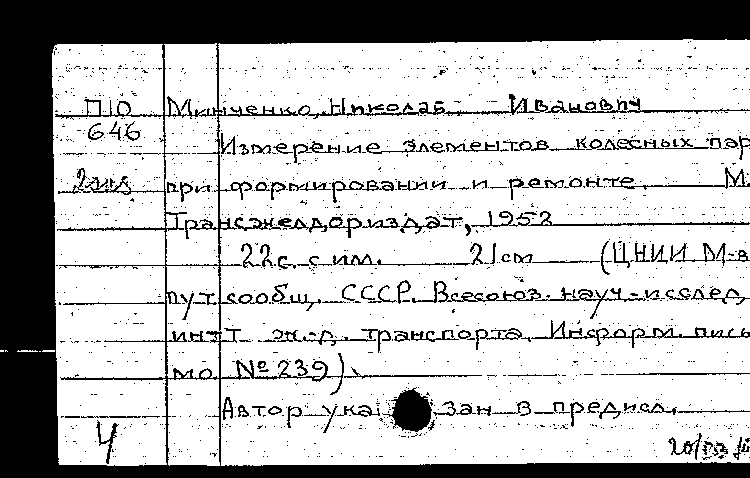 П10 Минченко, Николай Иванович
646
Измерение элементов колесных пар
2 экз при формировании и ремонте. М.
Трансжелдориздат, 1952
22с. с ил. 21см (ЦНИИ М-в
пут. сообщ. СССР. Всесоюз. науч.-исслед.
ин-т ж.-д. транспорта. Информ. пись
мо № 239).
Автор указан в предисл.
4